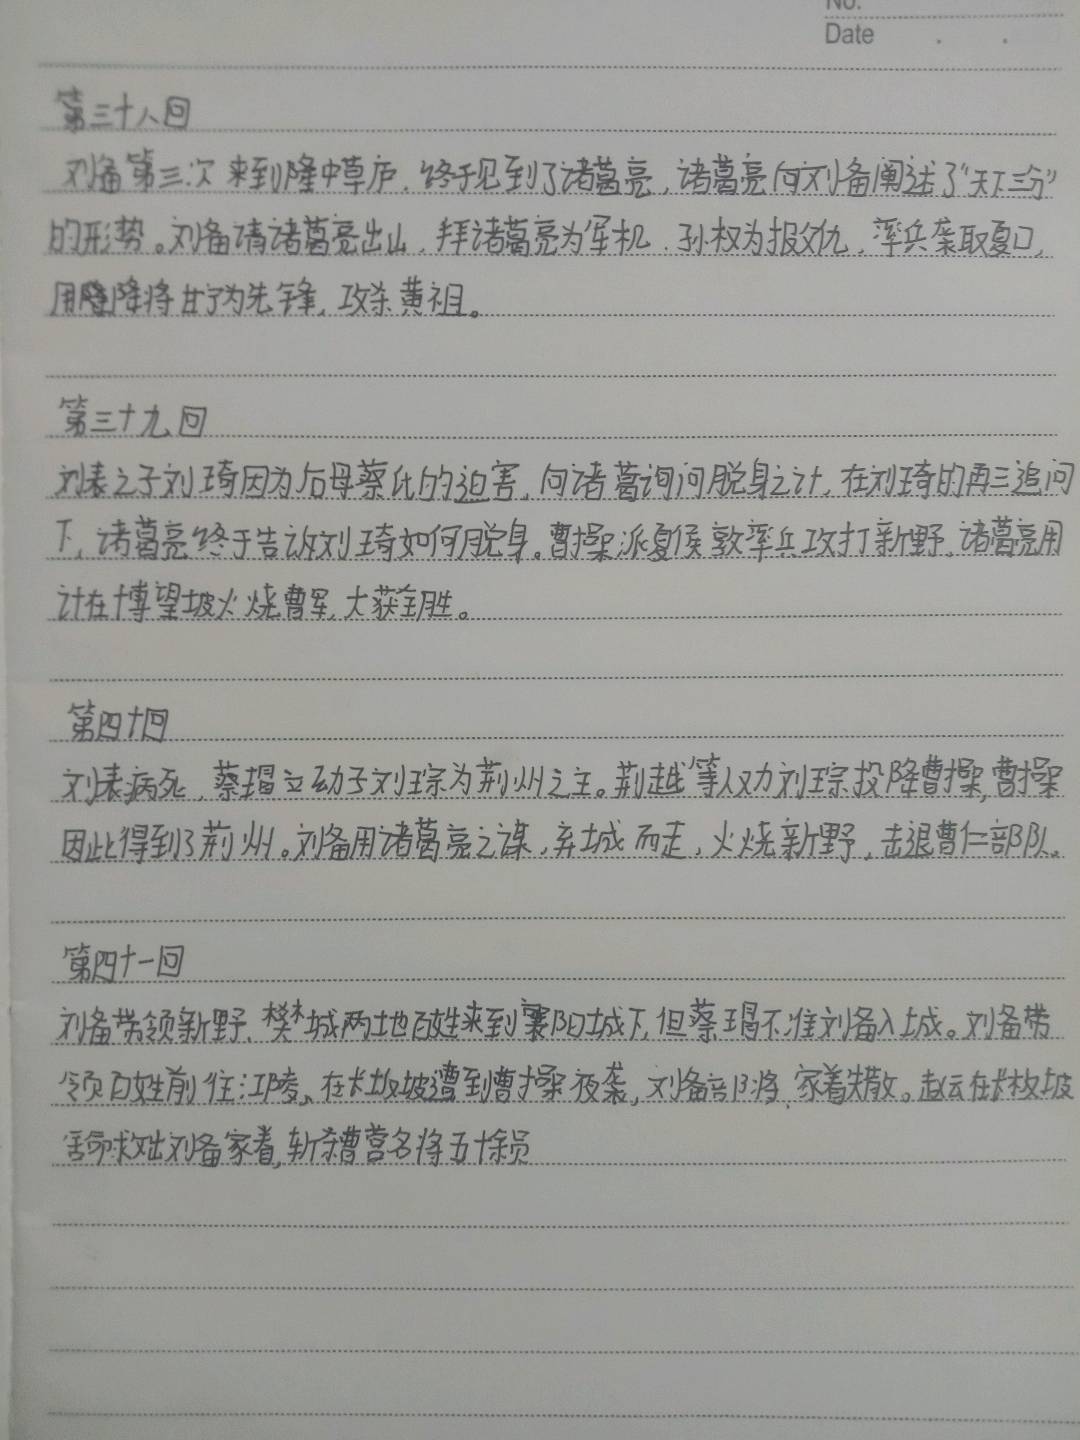 No.
Date
第三十八回
刘备第三次来到隆中草庐，终于见到了诸葛亮，诸葛亮向刘备阐述了“天下三分”
的形势。刘备请诸葛亮出山，拜诸葛亮为军机，孙权为报父仇，率兵袭取夏口，
用降将甘宁为先锋，攻杀黄祖。
第三十九回
刘表之子刘琦因为后母蔡氏的迫害，向诸葛询问脱身之计，在刘琦的再三追问
下，诸葛亮终于告诉刘琦如何脱身。曹操派夏侯敦率兵攻打新野，诸葛亮用
计在博望坡火烧曹军，大获全胜。
第四十回
刘表病死，蔡瑁立幼子刘琮为荆州之主。荆越等人劝刘琮投降曹操，曹操
因此得到了荆州。刘备用诸葛亮之谋，弃城而走，火烧新野，击退曹仁部队。
第四十一回
刘备带领新野、樊城两地百姓来到襄阳城下，但蔡瑁不准刘备入城。刘备带
领百姓前往江陵，在长坂坡遭到曹操夜袭，刘备部将、家眷失散。赵云在长坂坡
舍命救出刘备家眷，斩杀曹营名将五十余员